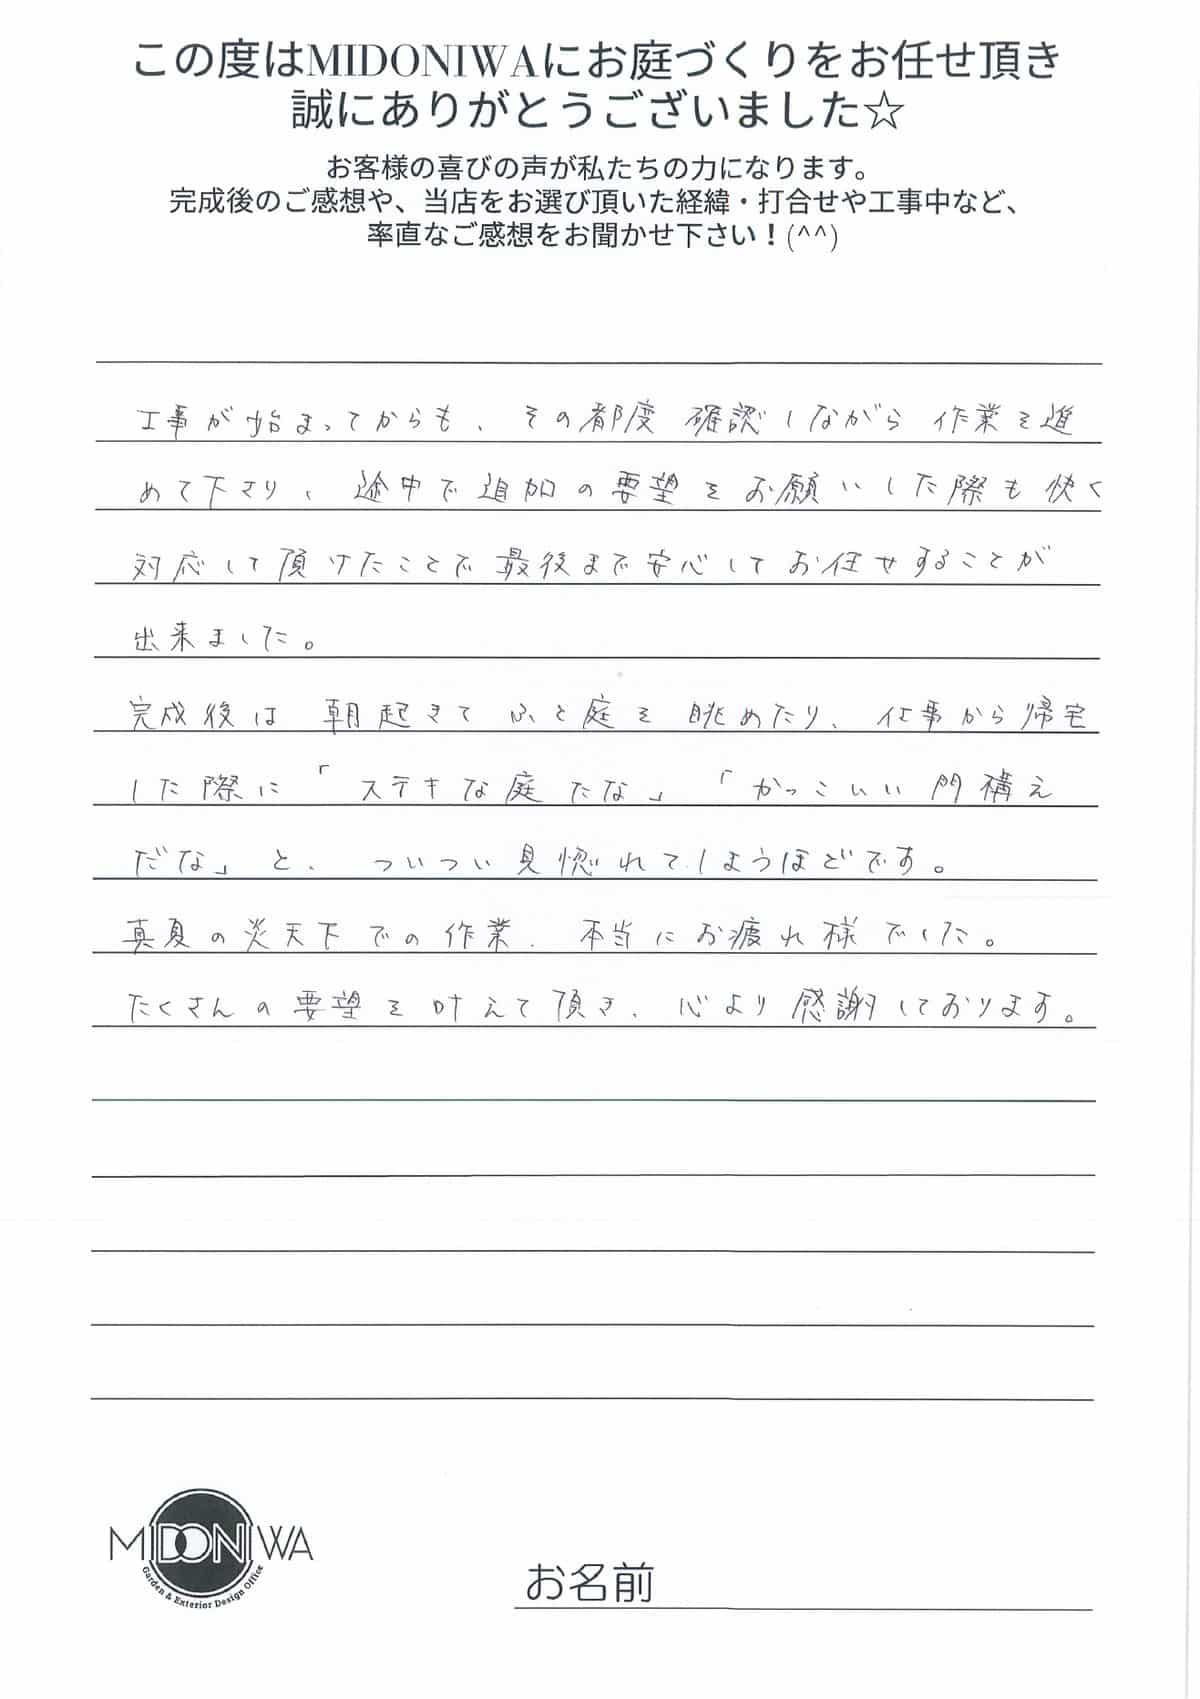 この度はMIDONIWAにお庭づくりをお任せ頂き
誠にありがとうございました☆
お客様の喜びの声が私たちの力になります。
完成後のご感想や、当店をお選び頂いた経緯・打合せや工事中など、
率直なご感想をお聞かせ下さい！(^^)
工事が始まってからも、その都度確認しながら作業を進
めて下さり、途中で追加の要望をお願いした際も快く
対応して頂けたことで最後まで安心してお任せすることが
出来ました。
完成後は朝起きてふと庭を眺めたり、仕事から帰宅
した際に「ステキな庭だな」「かっこいい門構え
だな」と、ついつい見惚れてしまうほどです。
真夏の炎天下での作業、本当にお疲れ様でした。
たくさんの要望を叶えて頂き、心より感謝しております。
MIDONIWA
Garden & Exterior Design Office
お名前